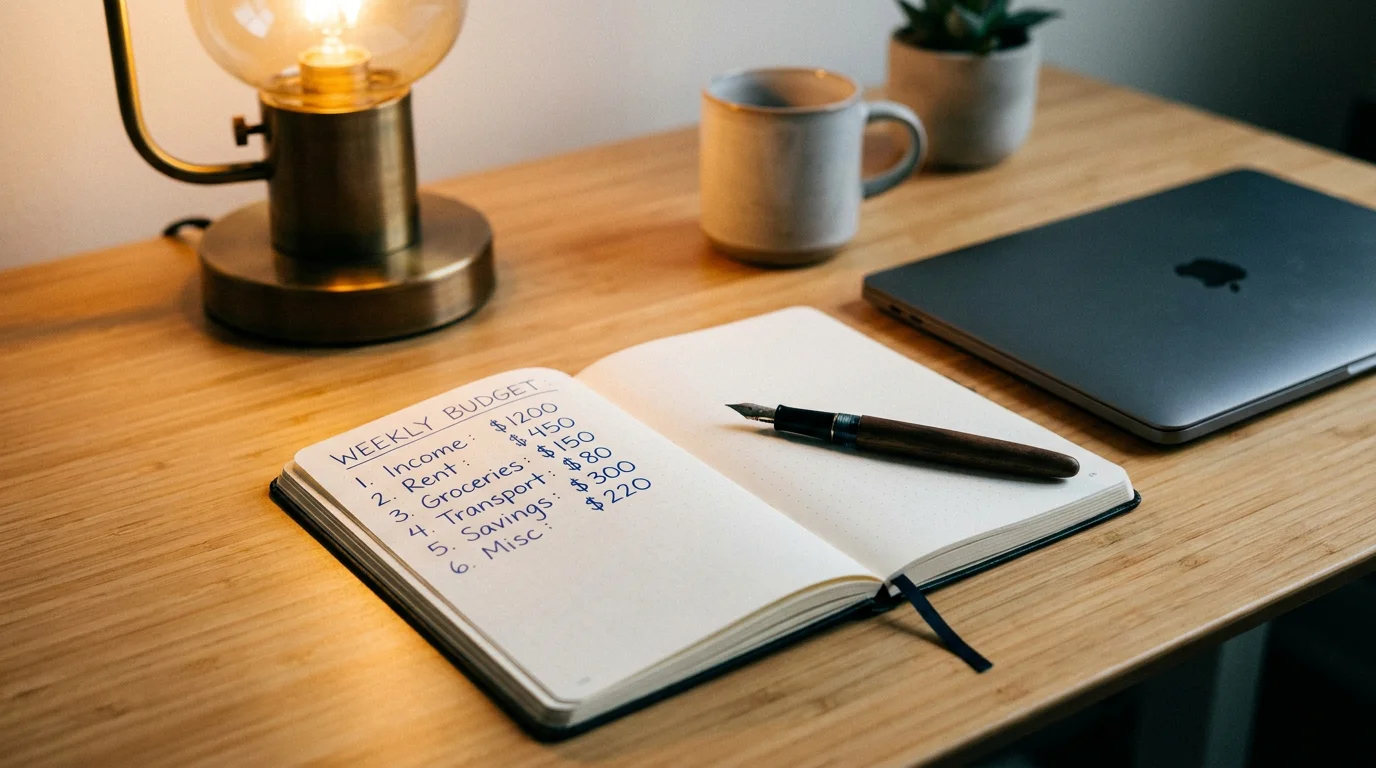 WEEKLY BUDGET:
1. Income: $1200
2. Rent: $450
3. Groceries: $150
4. Transport: $80
5. Savings: $300
6. Misc: $220